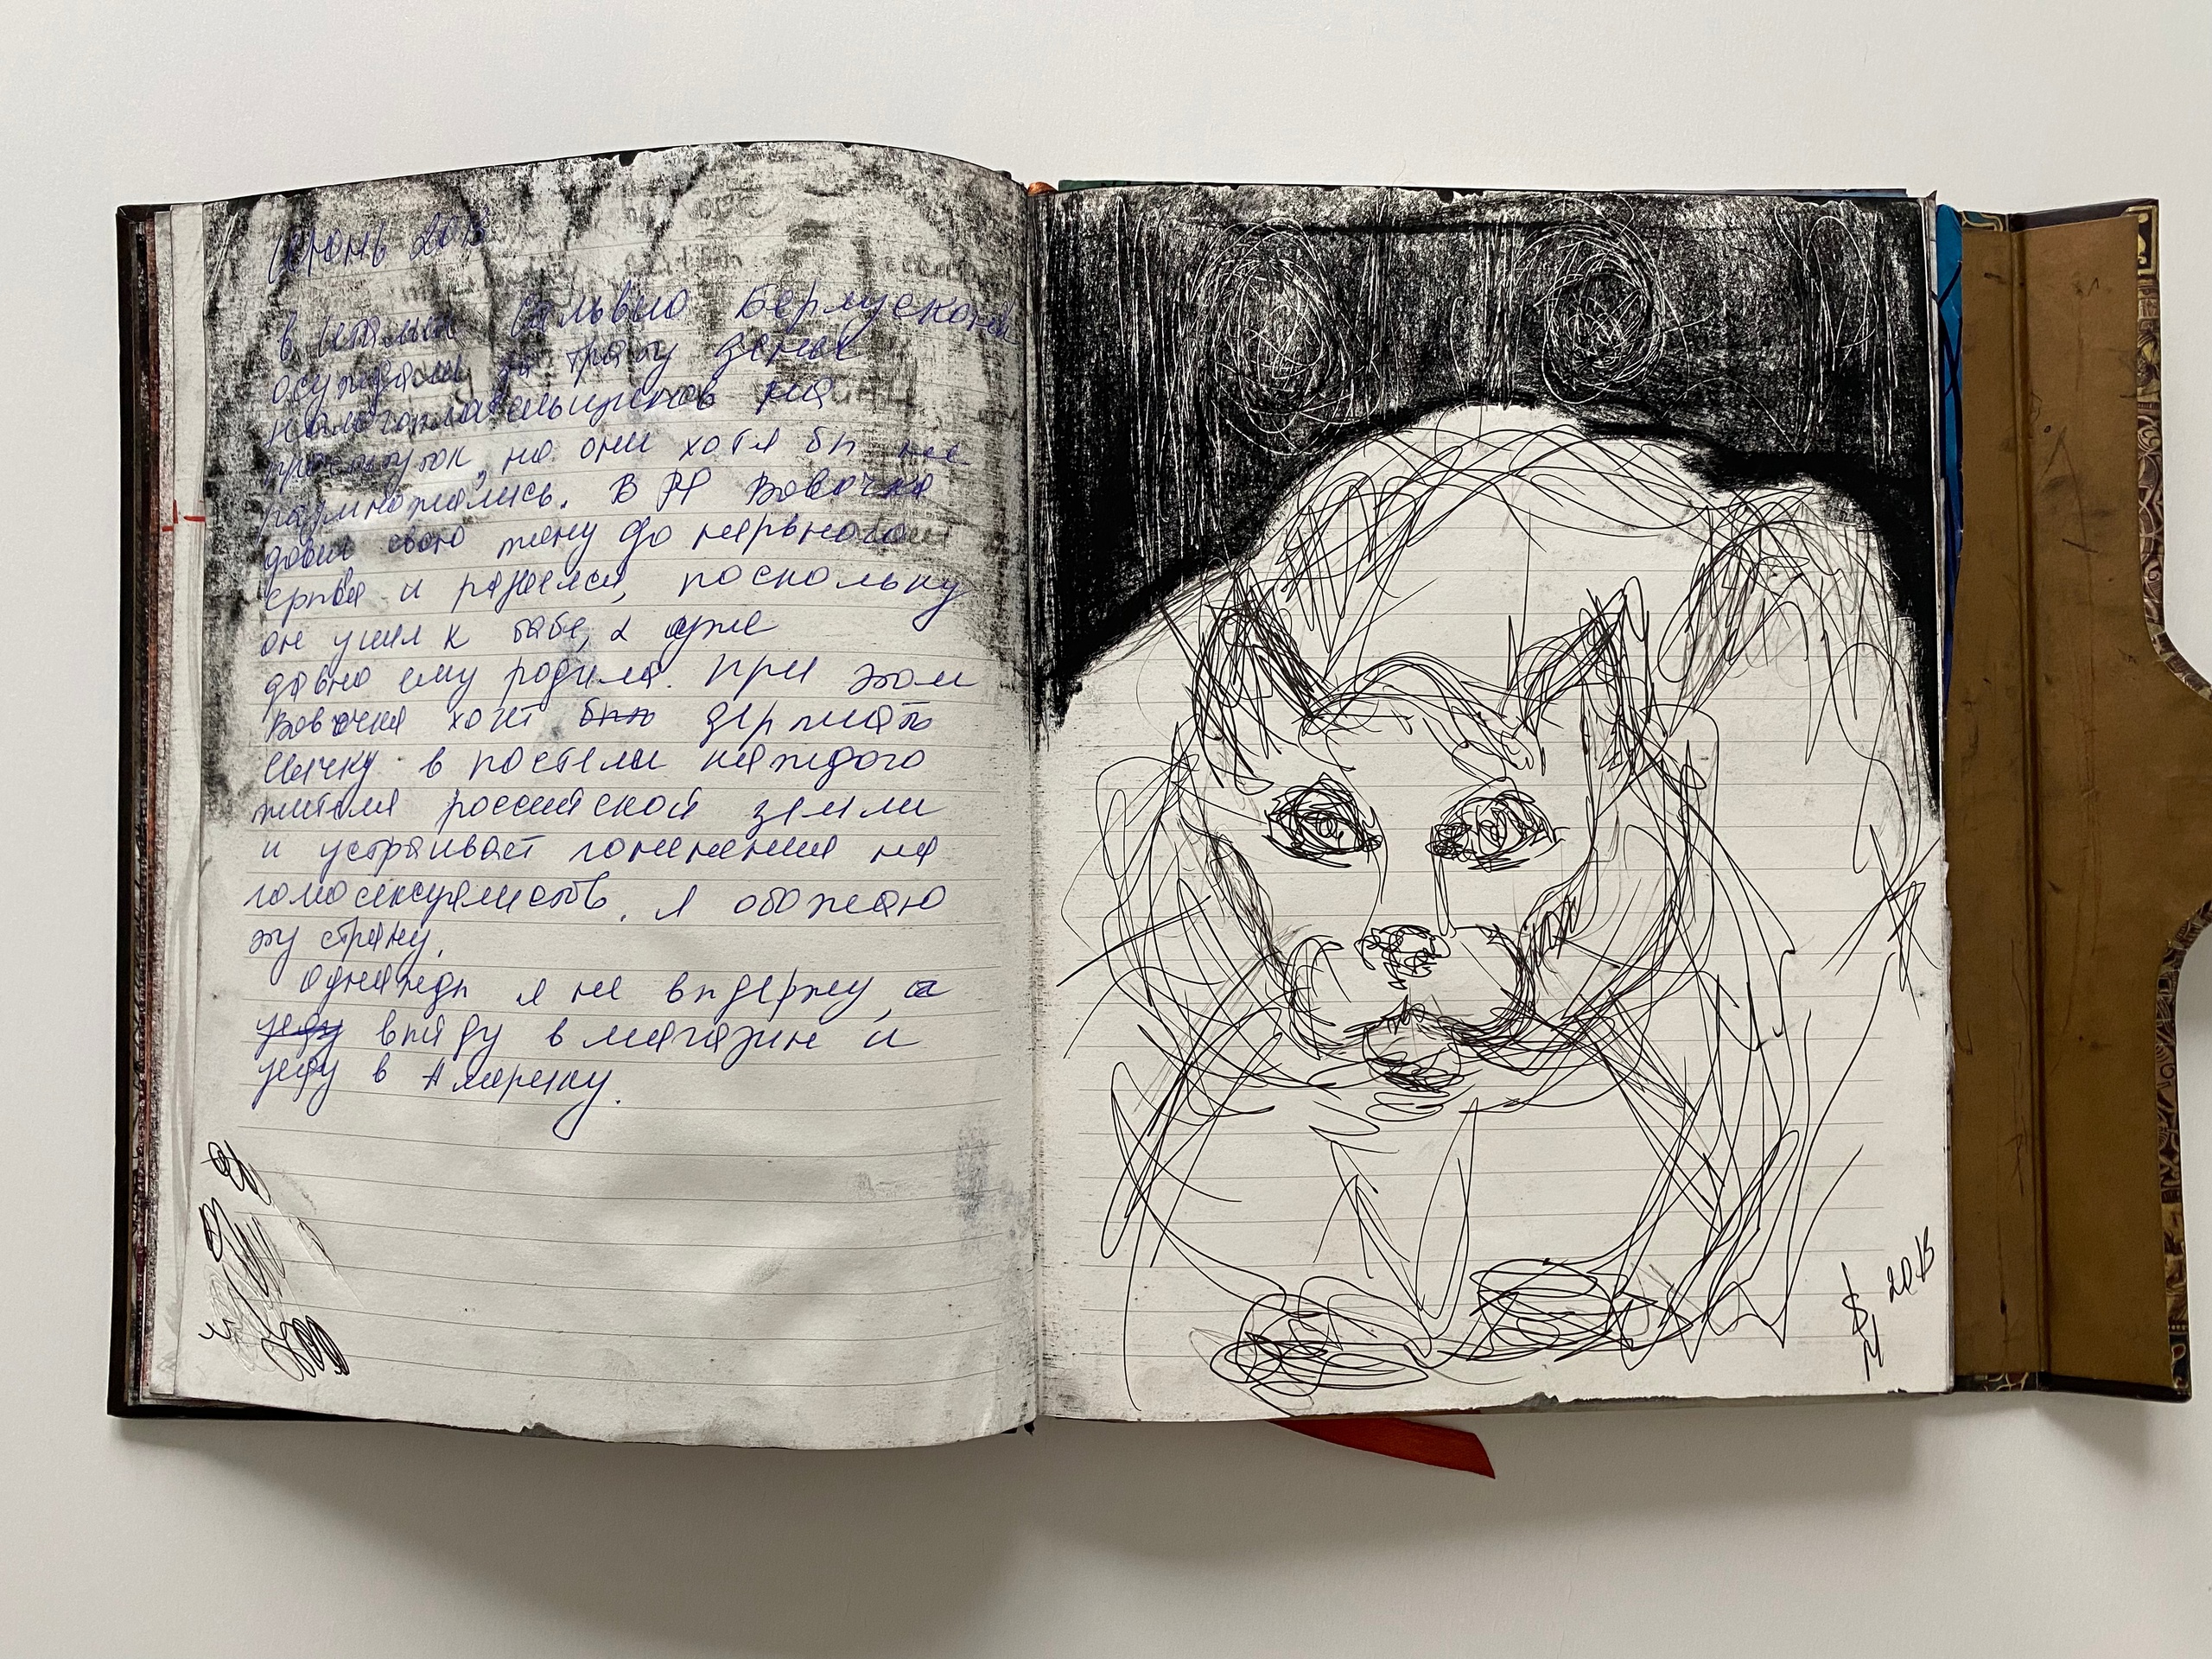 Июнь 2013
В Италии Сильвио Берлускони
осуждали за трату денег
налогоплательщиков на
проституток, но они хотя бы не
размножались. В РФ Вовочка
довел свою жену до нервного
срыва и развелся, поскольку
он ушел к бабе, уже
давно ему родила. При этом
Вовочка хочет быть держать
свечку в постели каждого
жителя российской земли
и устраивает гонения на
гомосексуалистов. Я обожаю
эту страну.
Однажды я не выдержу, а
уеду выйду в магазин и
уеду в Америку.
2013
М